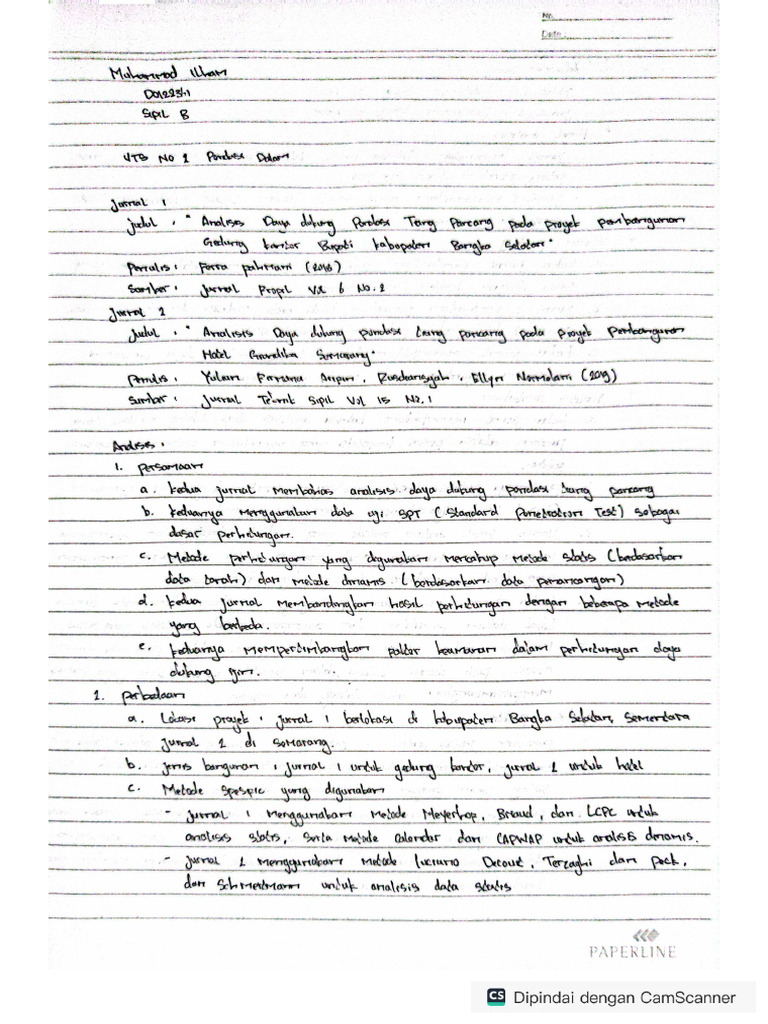 No.
Date.
Muhammad Ilham
Sipil B
UTS No 2 Pondasi Dalam
Jurnal 1
Judul : "Analisis Daya dukung Pondasi Tiang Pancang pada proyek pembangunan
Gedung kantor Bupati kabupaten Bangka Selatan"
Penulis : Fahriani (2018)
Sumber : Jurnal Propil Vol 6 No. 2
Jurnal 2
Judul : "Analisis Daya dukung pondasi tiang pancang pada proyek Pembangunan
Hotel Grandika Semarang"
Penulis : Yulian Ellyn Normelani (2019)
Sumber : Jurnal Teknik Sipil Vol 15 No. 1
Analisis :
1. persamaan
a. kedua jurnal membahas analisis daya dukung pondasi tiang pancang
b. keduanya menggunakan data uji SPT (Standard Penetration Test) sebagai
dasar perhitungan.
c. Metode perhitungan yang digunakan mencakup metode statis (berdasarkan
data tanah) dan metode dinamis (berdasarkan data pemancangan)
d. kedua jurnal membandingkan hasil perhitungan dengan beberapa metode
yang berbeda.
e. keduanya mempertimbangkan faktor keamanan dalam perhitungan daya
dukung ijin.
2. perbedaan
a. Lokasi proyek : jurnal 1 berlokasi di kabupaten Bangka Selatan, sementara
jurnal 2 di Semarang.
b. jenis bangunan : jurnal 1 untuk gedung kantor, jurnal 2 untuk hotel
c. Metode spesific yang digunakan
- jurnal 1 menggunakan metode Meyerhop, Briaud, dan LCPC untuk
analisis statis, serta metode kalender dan CAPWAP untuk analisis dinamis.
- jurnal 2 menggunakan metode Luciano Decourt, Terzaghi dan peck,
dan Schmertmann untuk analisis data statis
PAPERLINE
CS Dipindai dengan CamScanner